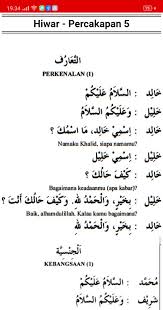 19.34
Hiwar - Percakapan 5
التَّعَارُفُ
PERKENALAN (1)
خَالِد : السَّلاَمُ عَلَيْكُمْ
خَلِيْل : وَعَلَيْكُمُ السَّلاَمُ
خَالِد : اِسْمِيْ خَالِد، مَا اسْمُكَ ؟
Namaku Khalid, siapa namamu?
خَلِيْل : اِسْمِيْ خَلِيْل
خَالِد : كَيْفَ حَالُكَ ؟
Bagaimana keadaanmu (apa kabar)?
خَلِيْل : بِخَيْرٍ، وَالْحَمْدُ للهِ. وَكَيْفَ حَالُكَ أَنْتَ ؟
Baik, alhamdulillah. Kalau kamu bagaimana?
خَالِد : بِخَيْرٍ، وَالْحَمْدُ للهِ
الْجِنْسِيَّة
KEBANGSAAN (1)
مُحَمَّد : السَّلاَمُ عَلَيْكُمْ
شَرِيْف : وَعَلَيْكُمُ السَّلاَمُ